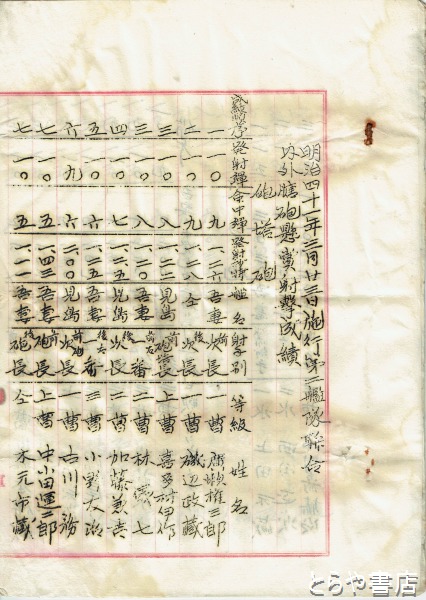 明治四十一年三月廿三日施行第二艦隊聯合
内外膅砲懸賞射撃成績
砲塔砲
成績順序 発射弾 命中弾 発射時 艦名 射手別 等級 姓名
一 一〇 九 一二六 吾妻 前 次長 一曹 権三郎
二 一〇 九 一二八 仝 後 次長 一曹 磯辺政藏
三 一〇 八 一二二 見島 前 砲長 上曹 喜多村伊作
三 一〇 八 一二二 吾妻 一番 二曹 林 七
四 一〇 七 一二五 見島 後 次長 二曹 加藤
五 一〇 六 一二五 吾妻 後 一番 三曹 小野
六 九 六 一二〇 見島 前 次長 一曹 古川
七 一〇 五 一四三 吾妻 前 砲長 上曹 中小田
七 一〇 五 一二二 吾妻 後 砲長 仝 木元市藏
とらや書店